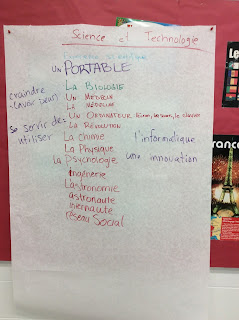 Science et Technologie
un PORTABLE
La Biologie
craindre
(avoir peur)
Un Médecin
La
Un Ordinateur
La Révolution
se servir de:
utiliser
La Chimie
l'informatique
La Physique
La Psychologie
une innovation
Ingénerie
L'astronomie
astronaute
internaute
réseau Social
rance